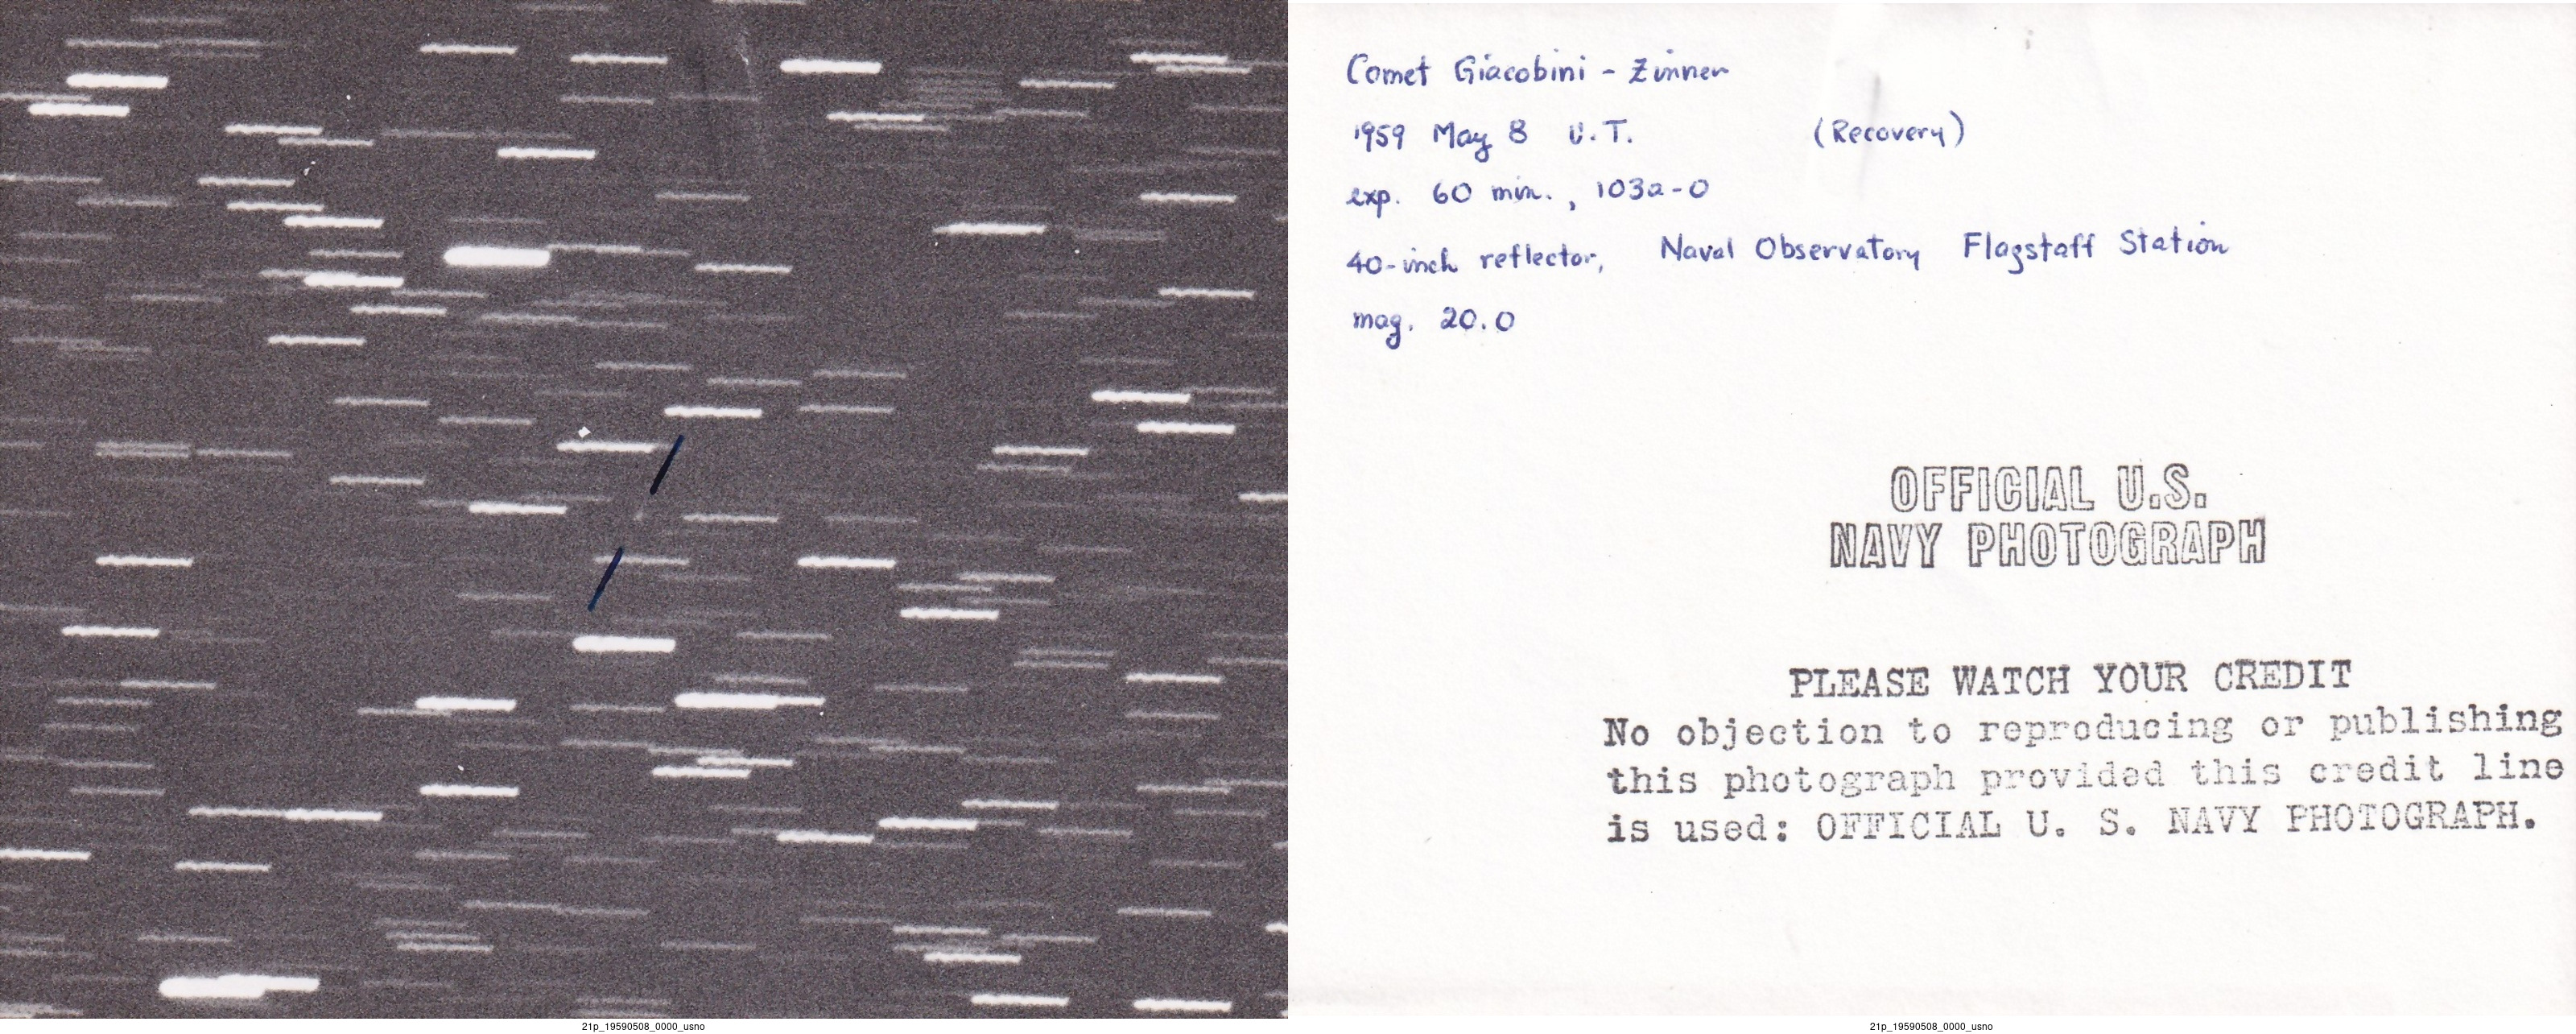 Comet Giacobini - Zinner
1959 May 8 U.T. (Recovery)
exp. 60 min., 103a-O
40-inch reflector, Naval Observatory Flagstaff Station
mag. 20.0
OFFICIAL U.S.
NAVY PHOTOGRAPH
PLEASE WATCH YOUR CREDIT
No objection to reproducing or publishing
this photograph provided this credit line
is used: OFFICIAL U. S. NAVY PHOTOGRAPH.
21p_19590508_0000_usno
21p_19590508_0000_usno